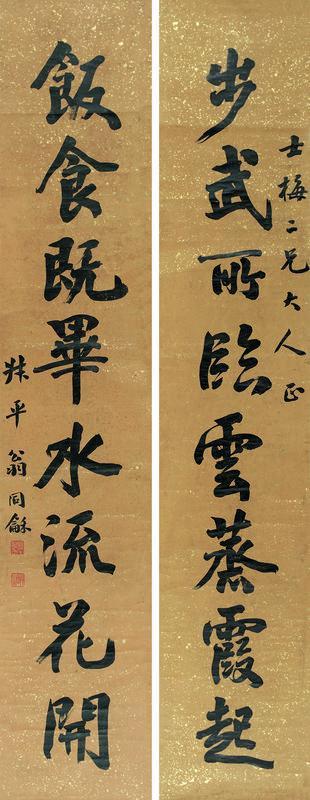 士梅二兄大人正
步武所臨雲蒸霞起
飯食既畢水流花開
叔平翁同龢